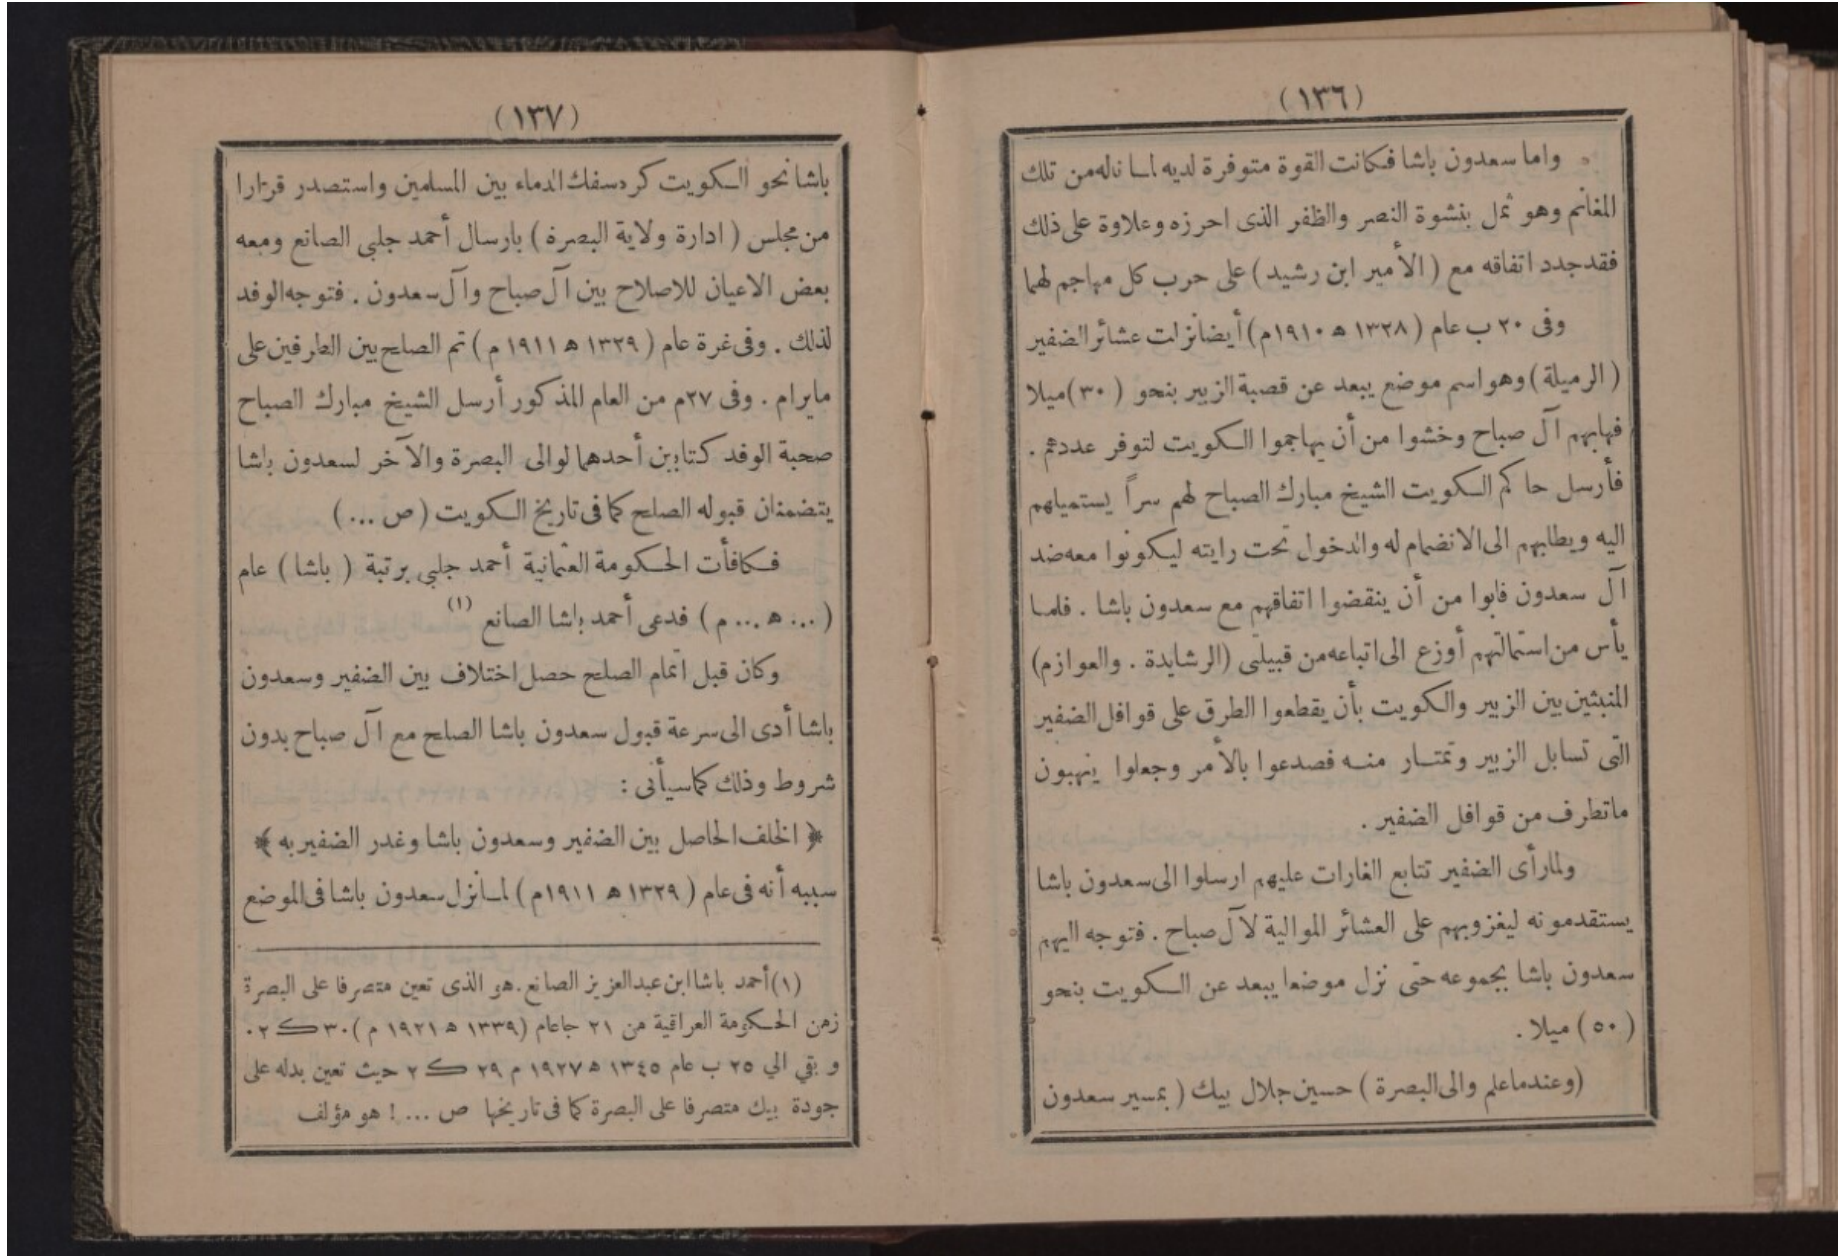 (١٣٦)
واما سعدون باشا فكانت القوة متوفرة لديه لما ناله من تلك
المغانم وهو ثمل بنشوة النصر والظفر الذى احرزه وعلاوة على ذلك
فقد جدد اتفاقه مع ( الأمير ابن رشيد ) على حرب كل مهاجم لهما
وفى ٢٠ ب عام ( ١٣٢٨ ه ١٩١٠م) أيضا نزلت عشائر الضفير
( الرميلة ) وهو اسم موضع يبعد عن قصبة الزبير بنحو ( ٣٠ ) ميلا
فهابهم آل صباح وخشوا من أن يهاجموا الكويت لتوفر عددهم .
فأرسل حاكم الكويت الشيخ مبارك الصباح لهم سراً يستميلهم
اليه ويطلبهم الى الانضمام له والدخول تحت رايته ليكونوا معه ضد
آل سعدون فابوا من أن ينقضوا اتفاقهم مع سعدون باشا . فلما
يأس من استمالتهم أوزع الى اتباعه من قبيلتى (الرشايدة . والعوازم)
المنبثين بين الزبير والكويت بأن يقطعوا الطرق على قوافل الضفير
التى تسابل الزبير وتمتار منه فصدعوا بالأمر وجعلوا ينهبون
ماتطرف من قوافل الضفير .
ولما رأى الضفير تتابع الغارات عليهم ارسلوا الى سعدون باشا
يستقدمونه ليغزوبهم على العشائر الموالية لآل صباح . فتوجه اليهم
سعدون باشا بجموعه حتى نزل موضعا يبعد عن الكويت بنحو
( ٥٠ ) ميلا .
(وعندما علم والى البصرة ) حسين جلال بيك ( بمسير سعدون
(١٣٧)
باشا نحو الكويت كره سفك الدماء بين المسلمين واستصدر قرارا
من مجلس ( ادارة ولاية البصرة ) بارسال أحمد جلبى الصانع ومعه
بعض الاعيان للاصلاح بين آل صباح وآل سعدون . فتوجه الوفد
لذلك . وفى غرة عام ( ١٣٢٩ ه ١٩١١ م ) تم الصلح بين الطرفين على
مايرام . وفى ٢٧م من العام المذكور أرسل الشيخ مبارك الصباح
صحبة الوفد كتابين أحدهما لوالى البصرة والآخر لسعدون باشا
يتضمنان قبوله الصلح كما فى تاريخ الكويت ( ص ... )
فكافأت الحكومة العثمانية أحمد جلبي برتبة ( باشا ) عام
( ... ه ... م ) فدعى أحمد باشا الصانع (١)
وكان قبل اتمام الصلح حصل اختلاف بين الضفير وسعدون
باشا أدى الى سرعة قبول سعدون باشا الصلح مع آل صباح بدون
شروط وذلك كما سيأتى :
﴿ الخلف الحاصل بين الضفير وسعدون باشا وغدر الضفير به ﴾
سببه أنه فى عام ( ١٣٢٩ ه ١٩١١م ) لما نزل سعدون باشا فى الموضع
(١) أحمد باشا ابن عبدالعزيز الصانع . هو الذى تعين متصرفا على البصرة
زمن الحكومة العراقية من ٢١ جا عام (١٣٣٩ ه ١٩٢١ م ) ٣٠ ك ٢ .
و بقي الي ٢٥ ب عام ١٣٤٥ ه ١٩٢٧ م ٢٩ ك ٢ حيث تعين بدله على
جودة بيك متصرفا على البصرة كما فى تاريخها ص ... ! هو مؤلف